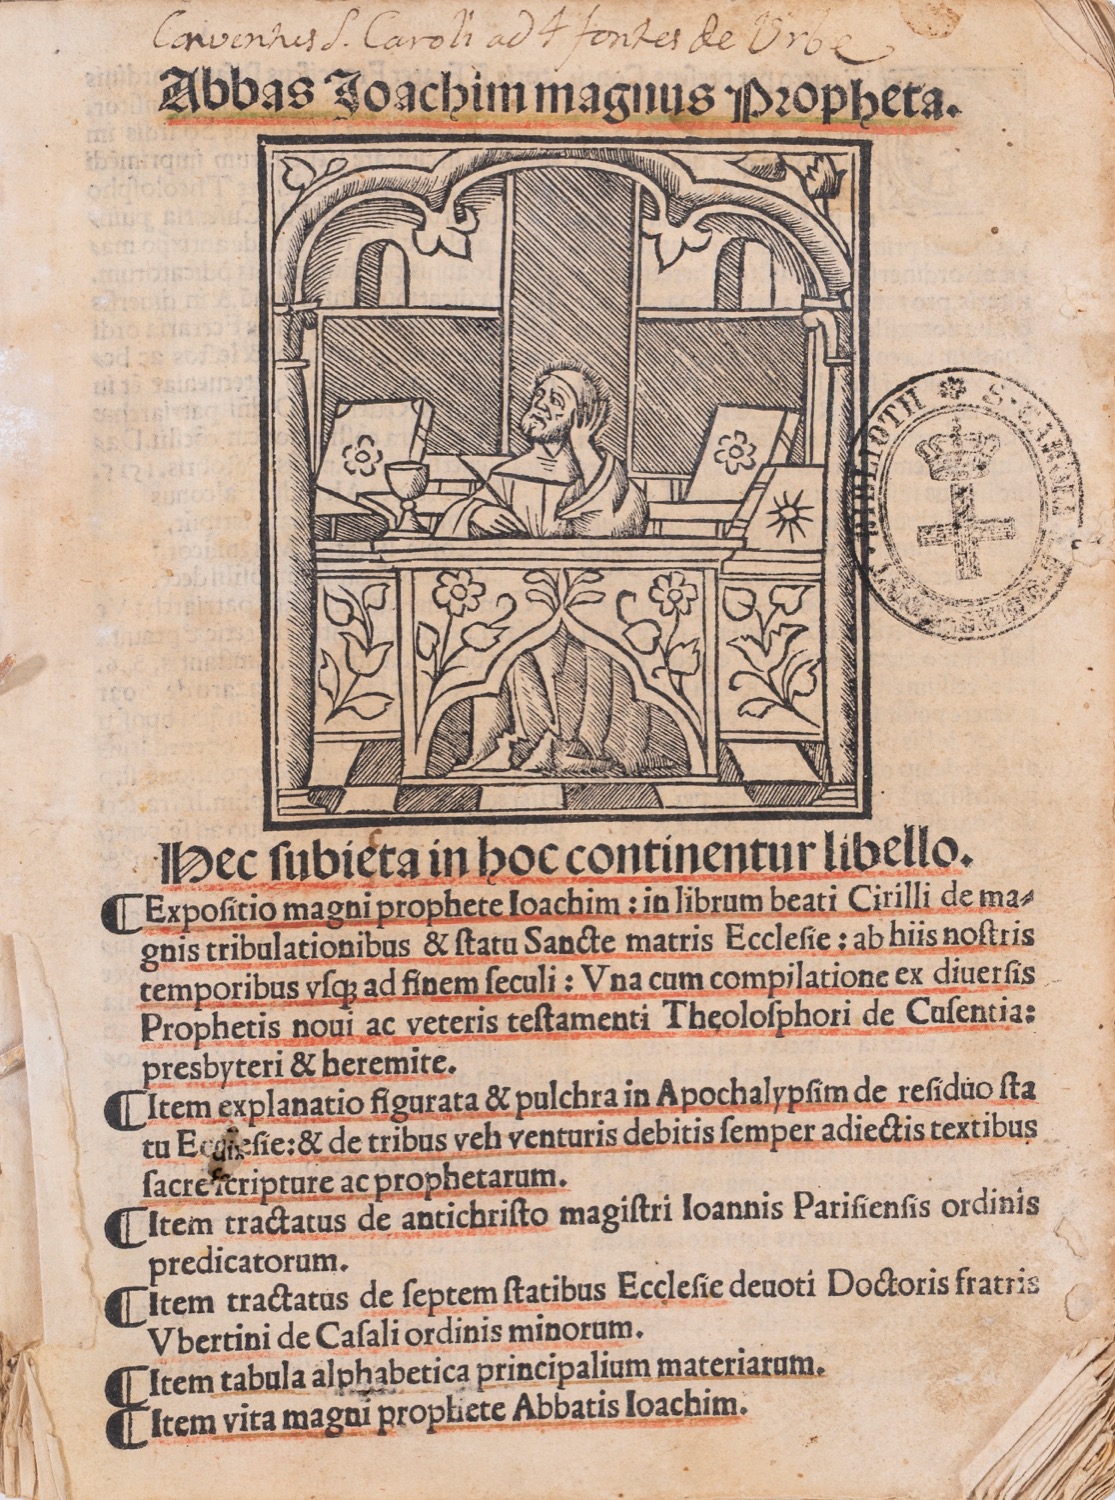 Conventus S. Caroli ad 4 fontes de Urbe
Abbas Ioachim magnus Propheta.
BIBLIOTH S. CAROLI
Hec subiecta in hoc continentur libello.
Expositio magni prophete Ioachim : in librum beati Cirilli de ma⸗
gnis tribulationibus & statu Sancte matris Ecclesie : ab hiis nostris
temporibus vsqꝫ ad finem seculi : Vna cum compilatione ex diuersis
Prophetis noui ac veteris testamenti Theolosphori de Cusentia:
presbyteri & heremite.
Item explanatio figurata & pulchra in Apochalypsim de residuo sta
tu Ecclesie: & de tribus veh venturis debitis semper adiectis textibus
sacre scripture ac prophetarum.
Item tractatus de antichristo magistri Ioannis Parisiensis ordinis
predicatorum.
Item tractatus de septem statibus Ecclesie deuoti Doctoris fratris
Vbertini de Casali ordinis minorum.
Item tabula alphabetica principalium materiarum.
Item vita magni prophete Abbatis Ioachim.